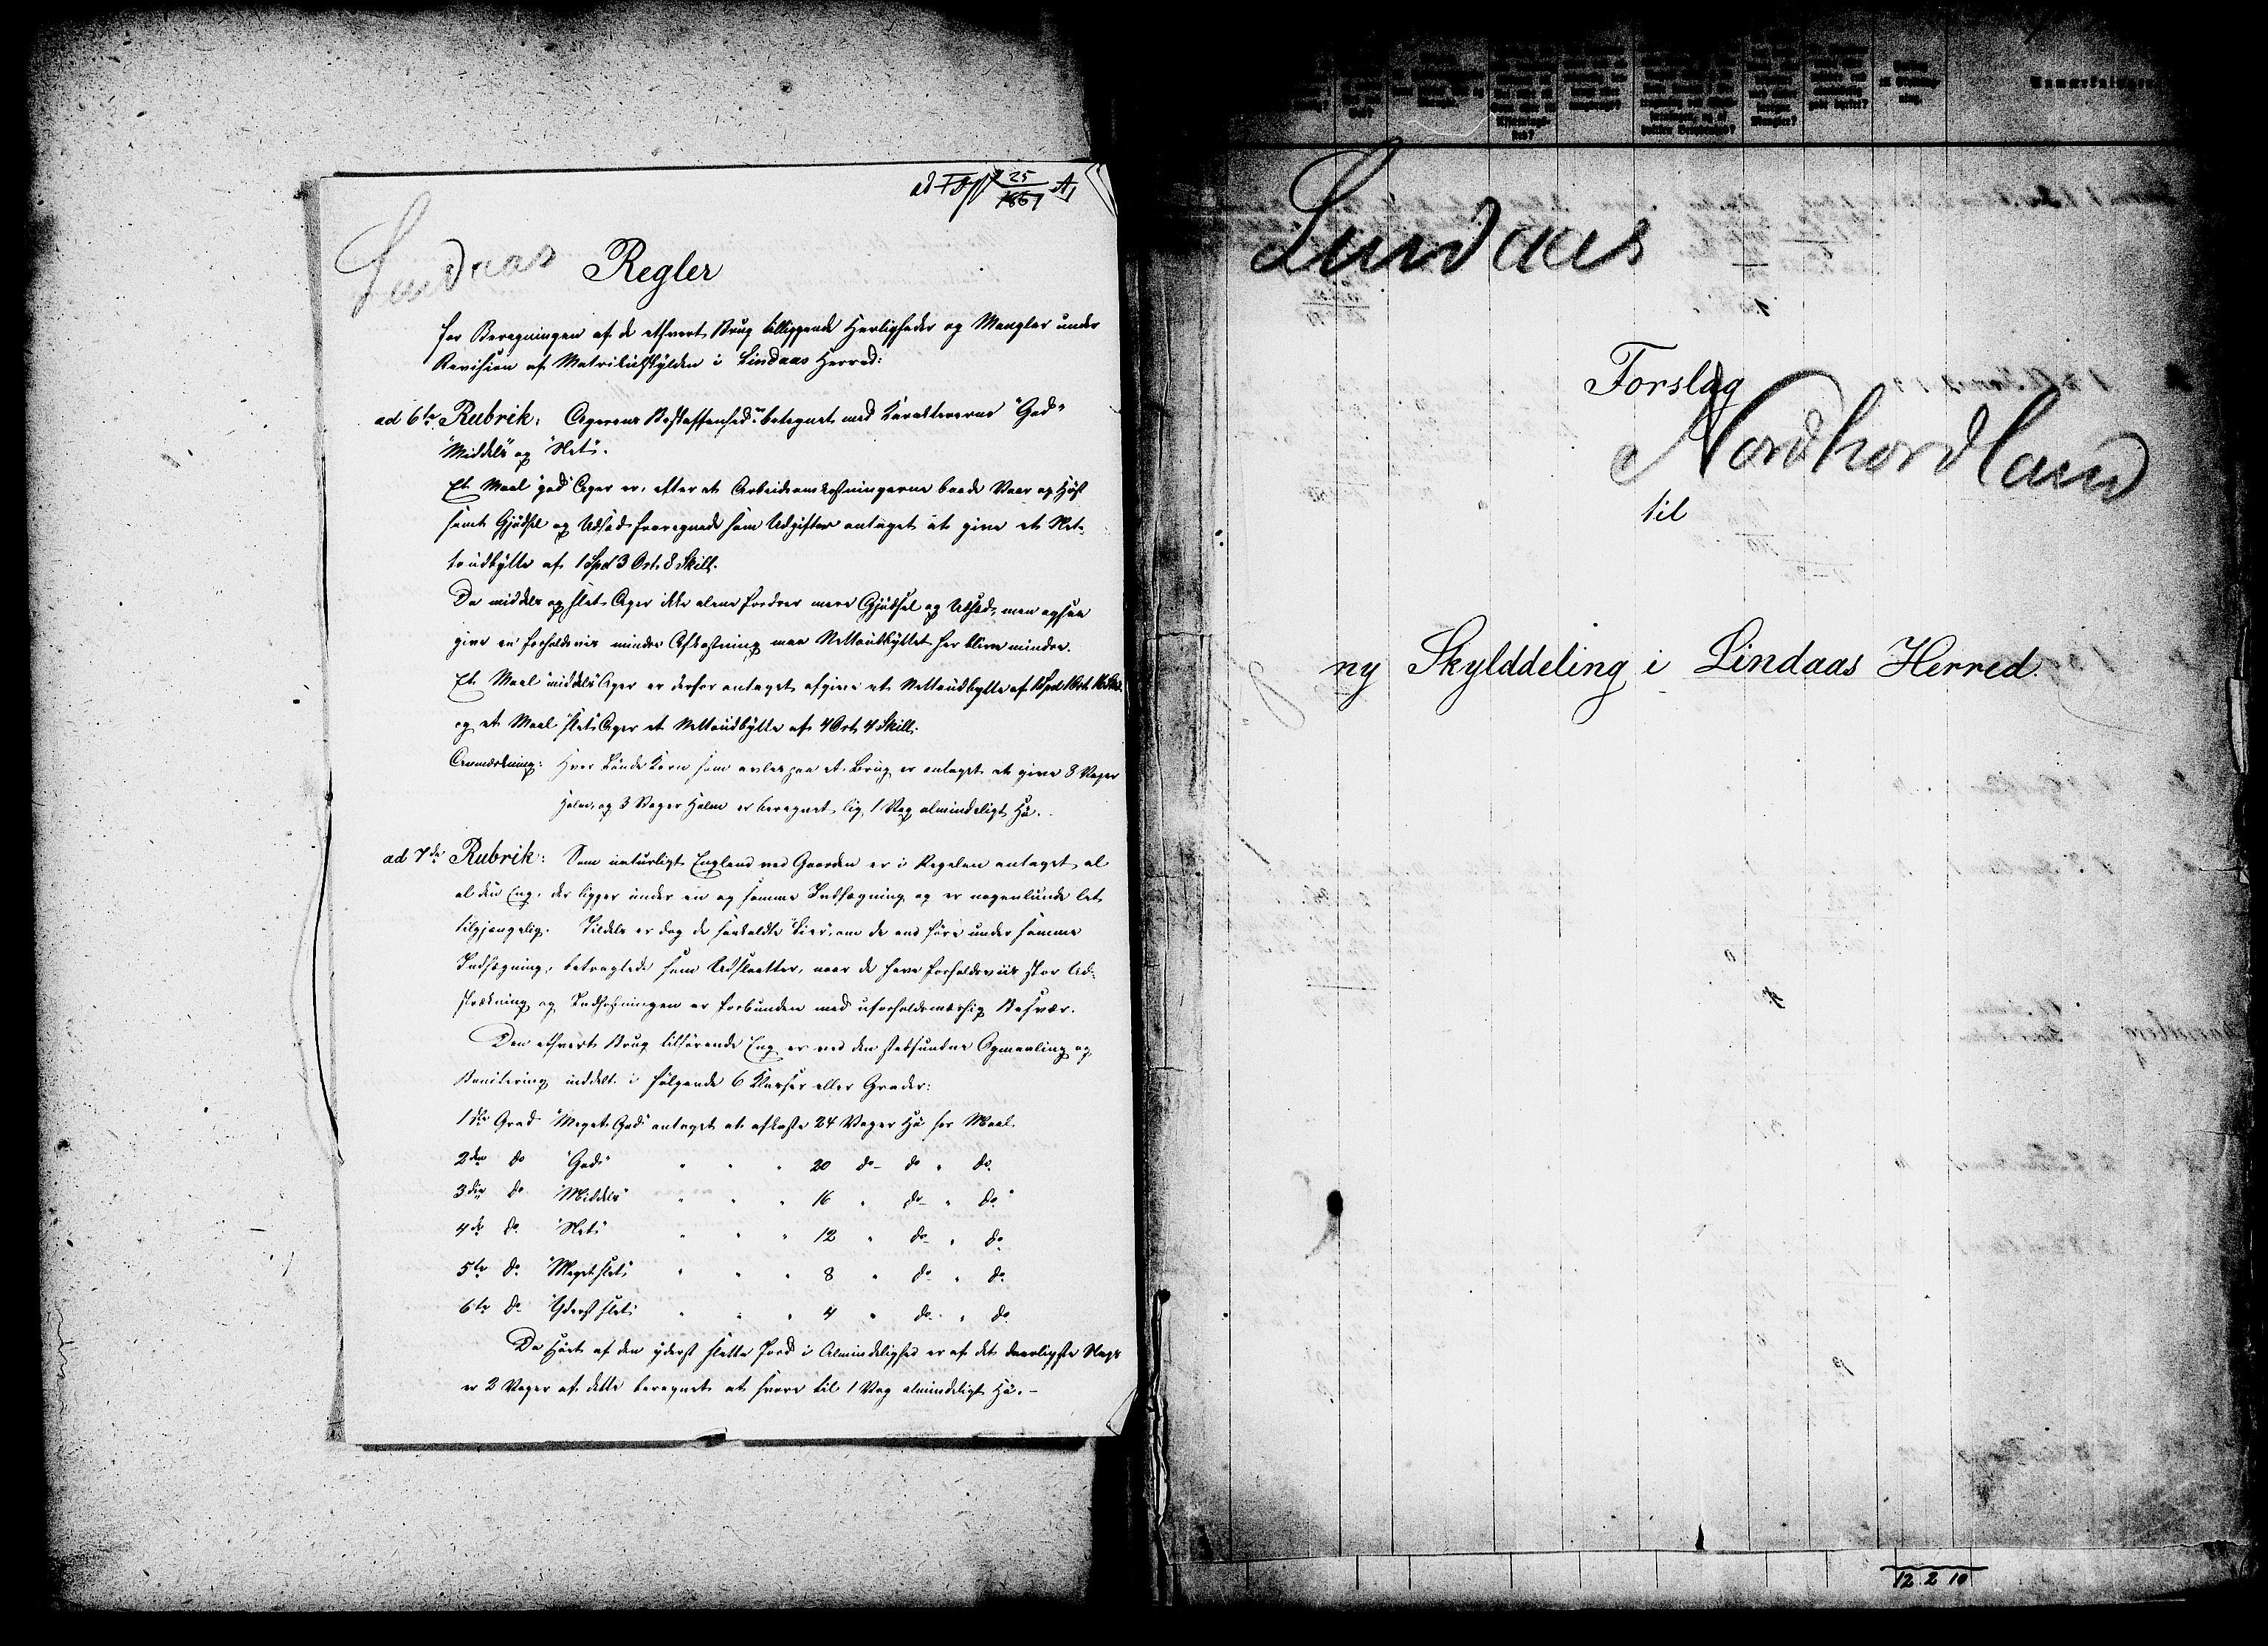 ad 25/1867 A,
Lindaas
Regler
for Beregningen af de ethvert Brug tilliggende Herligheder og Mangler under
Revision af Matrikulskylden i Lindaas Herred:
ad 6te Rubrik: Agerens Beskaffenhed betegnet med Karaktererne "God"
"Middels" og "Slet".
Et Maal "god" Ager er, efter at Arbeidsomkostningerne baade Vaar og Høst
samt Gjødsel og Udsæd fraregnede som Udgifter antaget at give et Net-
toudbytte af 1 Spd 3 Ort 8 Skill.
Da middels og slet Ager ikke alene fordrer mere Gjødsel og Udsæd, men ogsaa
give en forholdsvis mindre Afkastning maa Nettoudbyttet her blive mindre.
Et Maal "middels" Ager er derfor antaget at give et Nettoudbytte af 1 Spd 1 Ort 16 Skill.
og et Maal "slet" Ager et Nettoudbytte af 4 Ort 4 Skill.
Anmærkning: Hver Tønde Korn som avles paa et Brug er antaget at give 3 Vager
Halm, og 3 Vager Halm er beregnet lig 1 Vag almindeligt Hø.
ad 7de Rubrik: Som naturligt England ved Gaarden er i Regelen antaget al
al den Eng, der ligger under en og samme Indhægning og er nogenlunde let
tilgjængelig. Tildels er dog de saakaldte "Lier", om de end høre under samme
Indhægning, betragtede som Udslaatter, naar de have forholdsviis stor Ud-
strækning og Indhøstningen er forbunden med uforholdsmæssig Besvær.
Den ethvert Brug tilhørende Eng er ved den stedfundne Opmaaling og
Bonitering inddelt i følgende 6 Klasser eller Grader:
1ste Grad "Meget God" antaget at afkaste 24 Vager Hø per Maal.
2den do "God" " " " 20 do do " do.
3die do "Middels" " " " 16 " do " do "
4de do. "Slet" " " " 12 " do " do
5te do. "Meget slet" " " " 8 " do " do
6te do "Yderst slet" " " " 4 " do " do
Da Høet af den yderst slette Jord i Almindelighed er af det daarligste Slags
er 2 Vager af dette beregnet at svare til 1 Vag almindeligt Hø. –
Anmærkninger
Lindaas
Forslag
Nordhordland
til
ny Skylddeling i Lindaas Herred.
12 2 10